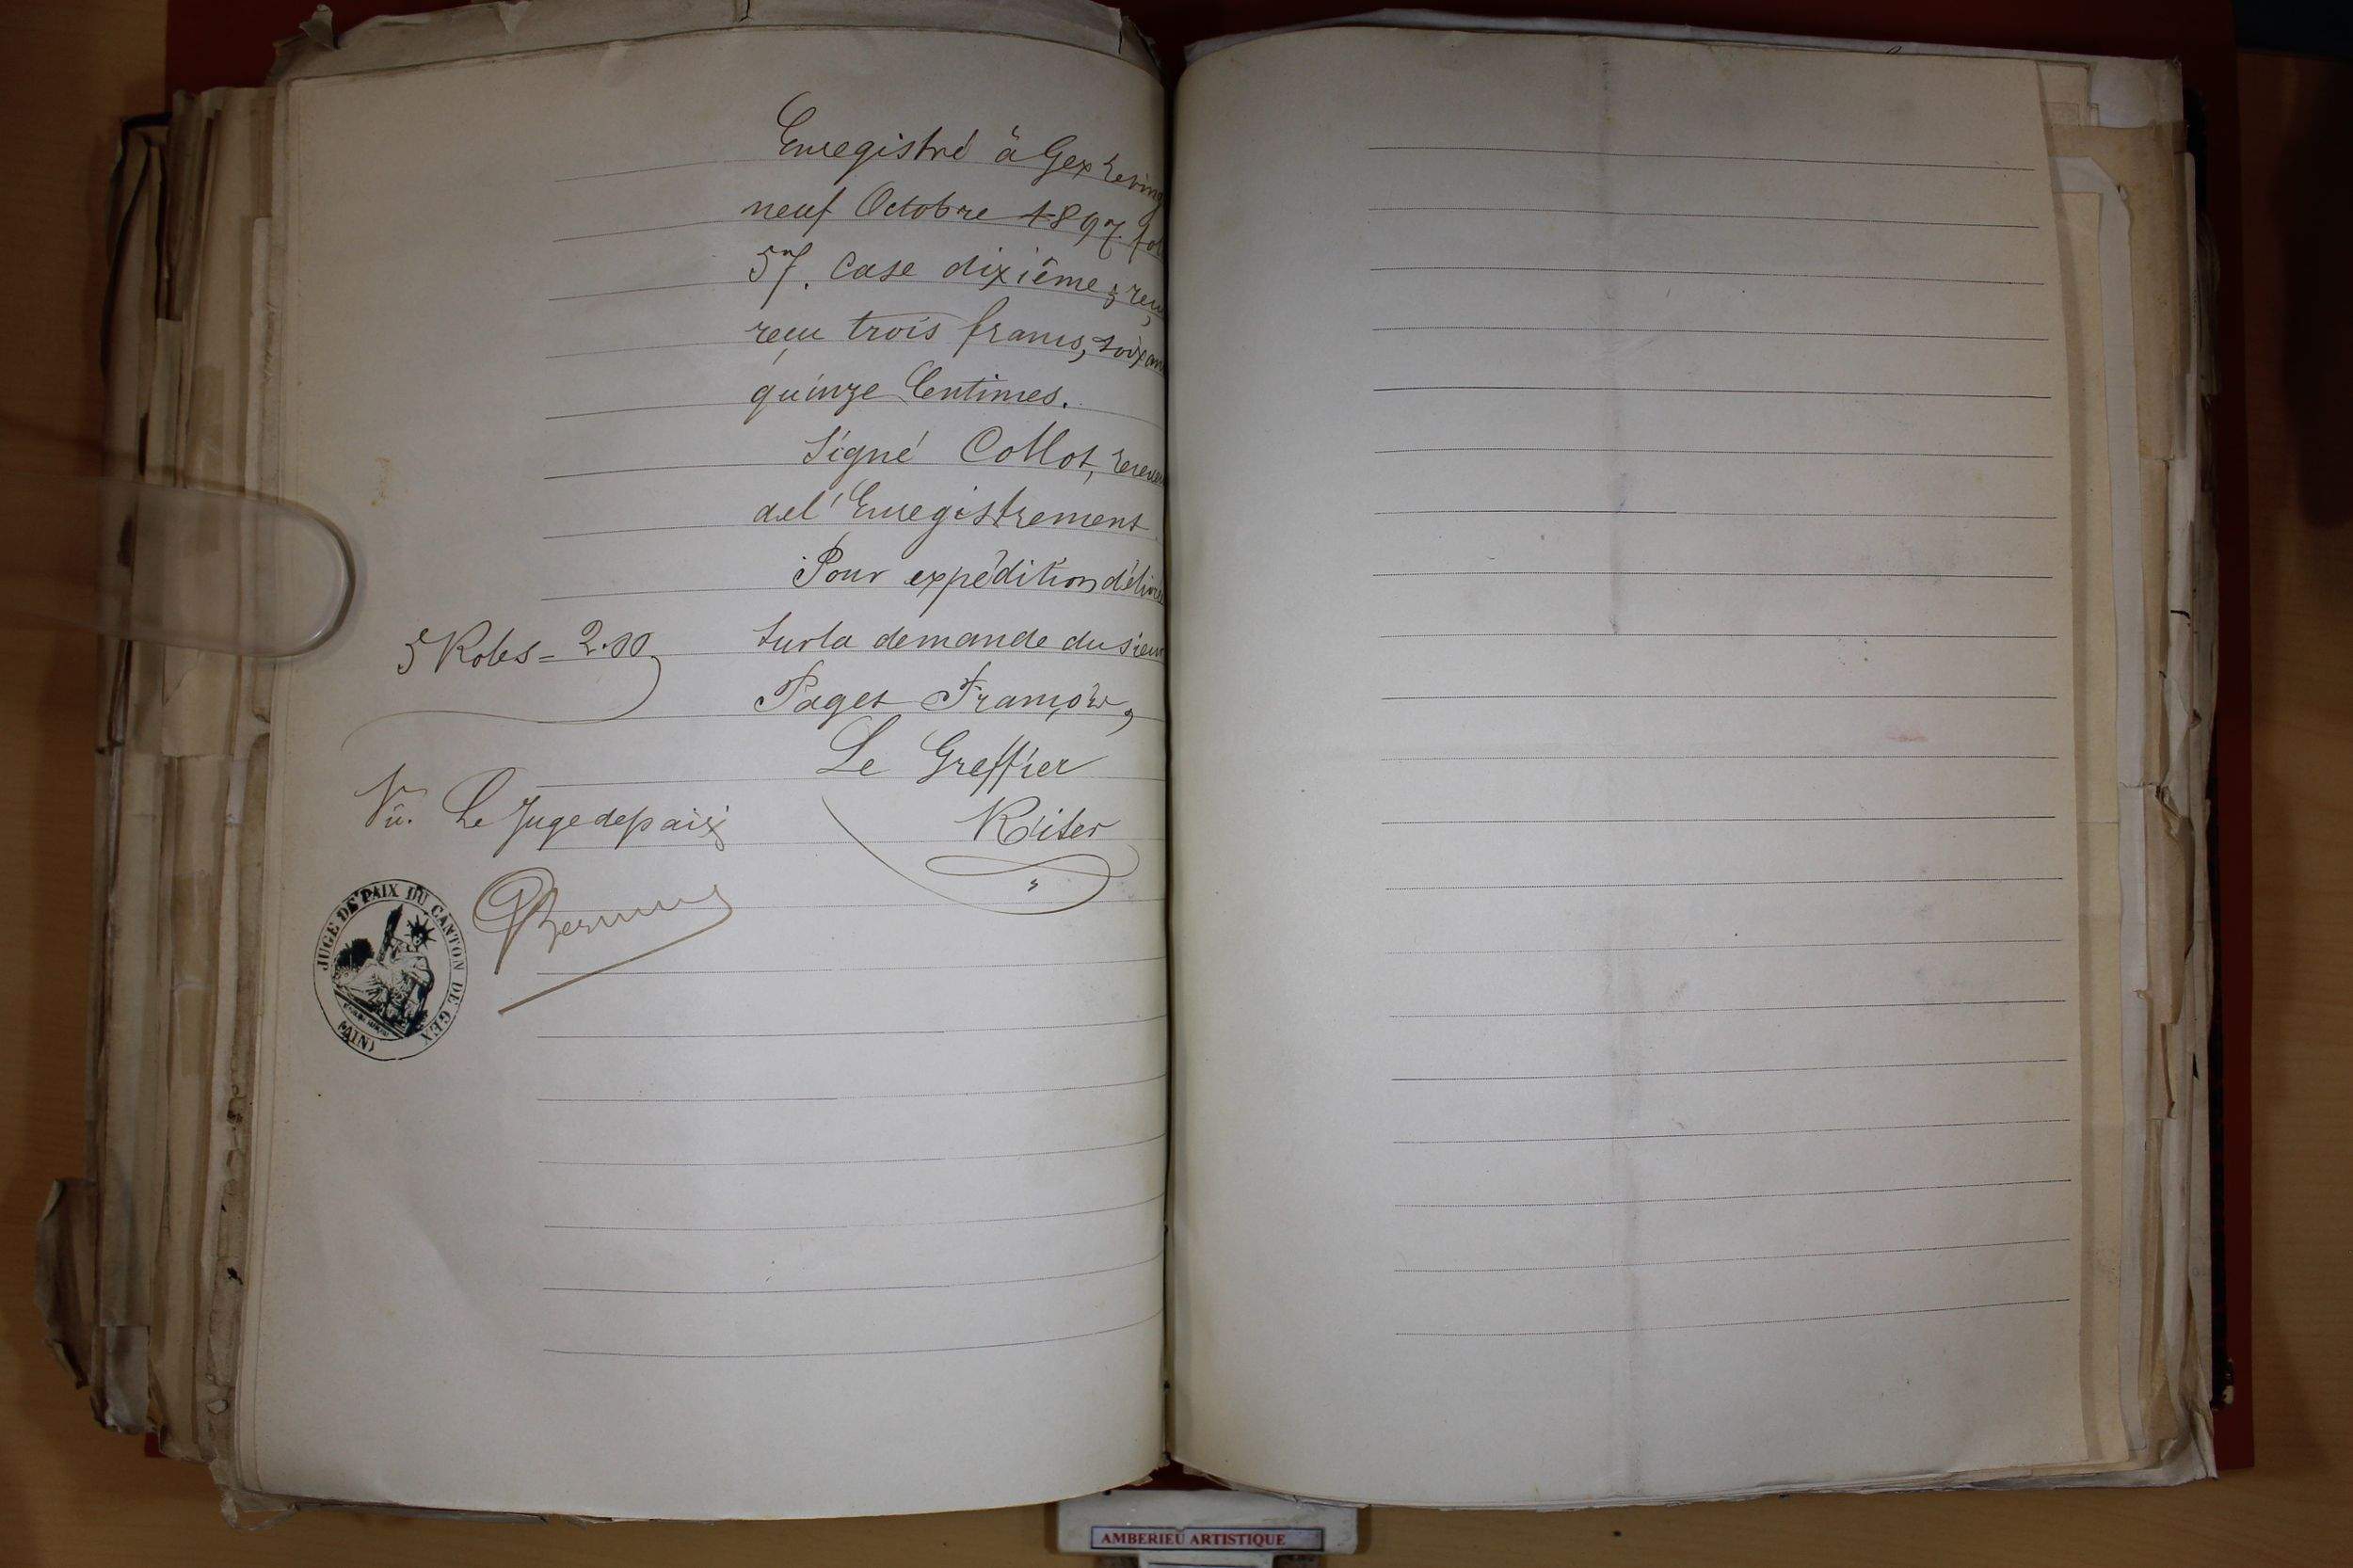 Enregistré à Gex le ving
neuf Octobre 1897 fol
57. Case dixième; reçu
reçu trois francs, soixan
quinze Centimes.
Signé Collot, receveu
de l'Enregistrement
Pour expédition délivrée
5 Roles = 2.00
sur la demande du sieur
Pages François,
Le Greffier
Vu. Le Juge de paix
JUGE DE PAIX DU CANTON DE GEX
(AIN)
AMBERIEU ARTISTIQUE